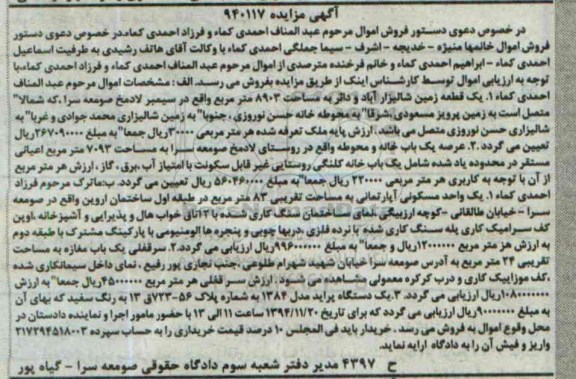 آگهی مزایده ۹۴۰۱۱۷
در خصوص دعوی دستور فروش اموال مرحوم عبد المناف احمدی کماء و فرزاد احمدی کماء.در خصوص دعوی دستور
فروش اموال خانمها منیژه - خدیجه - اشرف - سیما جملگی احمدی کماء با وکالت آقای هاتف رشیدی به طرفیت اسماعیل
احمدی کماء - ابراهیم احمدی کماء و خانم فرخنده مترصدی از اموال مرحوم عبد المناف احمدی کماء و فرزاد احمدی کماء.با
توجه به ارزیابی اموال توسط کارشناس اینک از طریق مزایده بفروش می رسد. الف : مشخصات اموال مرحوم عبد المناف
احمدی کماء ۱. یک قطعه زمین شالیزار آباد و دائر به مساحت ۸۹۰۳ متر مربع واقع در سیمبر لادمخ صومعه سرا ،که شمالا"
متصل است به زمین پرویز مسعودی ،شرقا" به محوطه خانه حسن نوروزی ، جنوبا" به زمین شالیزاری محمد جوادی و غربا" به
شالیزاری حسن نوروزی متصل می باشد. ارزش پایه ملک تعرفه شده هر متر مربعی ۳۰۰۰۰ریال جمعا" به مبلغ ۲۶۷۰۹۰۰۰۰ریال
تعیین می گردد .۲. عرصه یک باب خانه و محوطه واقع در روستای لادمخ صومعه سرا به مساحت ۷۰۹۳ متر مربع اعیانی
مستقر در محدوده یاد شده شامل یک باب خانه کلنگی روستایی غیر قابل سکونت با امتیاز آب ،برق ، گاز ، ارزش هر متر مربع
از آن با توجه به کاربری هر متر مربعی ۲۲۰۰۰۰ ریال جمعا" به مبلغ ۱۵۶۰۴۶۰۰۰۰ ریال تعیین می گردد. ب:ماترک مرحوم فرزاد
احمدی کماء ۱. یک واحد مسکونی آپارتمانی به مساحت تقریبی ۸۳ متر مربع در طبقه اول ساختمان اروین واقع در صومعه
سرا - خیابان طالقانی -کوچه ارزبیگی ،نمای ساختمان سنگ کاری شده با ۲اتاق خواب هال و پذیرایی و آشپزخانه ،اوپن
کف سرامیک کاری پله سنگ کاری شده با نرده فلزی ،دربها چوبی و پنجره ها آلومنیومی با پارکینگ مشترک با طبقه دوم
به ارزش هر متر مربع ۱۲۰۰۰۰۰۰ریال و جمعا" به مبلغ ۹۹۶۰۰۰۰۰۰ریال ارزیابی می گردد.۲. سرقفلی یک باب مغازه به مساحت
تقریبی ۲۴ متر مربع به آدرس صومعه سرا خیابان شهید شهرام طلوعی ،جنب نجاری پور رفیع ، نمای داخل سیمانکاری شده
،کف موزاییک کاری و درب کرکره معمولی مشاهده می شود . ارزش سر قفلی هر متر مربع ۴۵۰۰۰۰۰۰ریال جمعا" به ارزش
۱۰۸۰۰۰۰۰۰۰ریال ارزیابی می گردد. ۳.یک دستگاه پراید مدل ۱۳۸۴ به شماره پلاک ۵۶-۷۲۳ق ۱۳ به رنگ سفید که بهای آن
به مبلغ ۹۰۰۰۰۰۰۰ریال ارزیابی می گردد که برای تاریخ ۱۳۹۴/۱۱/۲۰ ساعت ۱۱ الی ۱۳ با حضور مامور اجرا و نماینده دادستان در
محل وقوع اموال به فروش می رسد . خریدار باید فی المجلس ۱۰ درصد قیمت خریداری را به حساب سپرده ۲۱۷۲۹۴۵۱۸۰۰۳
واریز و فیش آن را به دادگاه ارایه نماید.
ح ۴۳۹۷ مدیر دفتر شعبه سوم دادگاه حقوقی صومعه سرا - گیاه پور